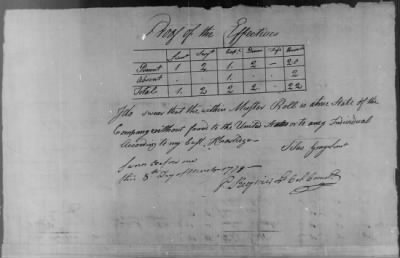 Proof of the Effectives
Lieut Serjt Corp Drum Fife Privat
Present 1 2 1 2 - 20
Absent . . 1 . . 2
Total 1 2 2 2 - 22
I do swear that the within Muster Roll is a true State of the
Company without fraud to the United States or to any Individual
According to my best Knowledge
Silas
Sworn before me
this 8th Day of March 1779
Lt Col Comdt